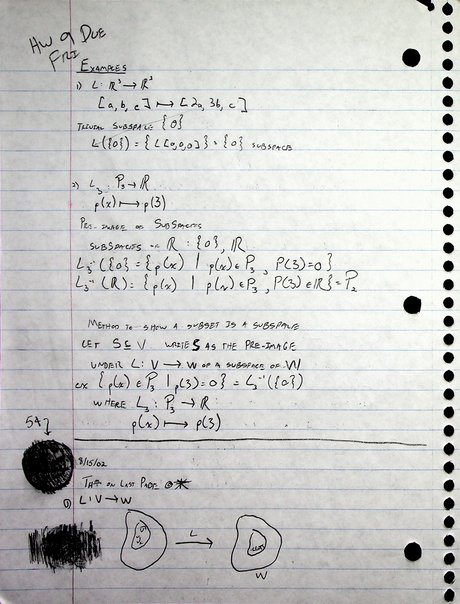 HW 9 DUE
FRI
EXAMPLES
1) L: ℝ³ → ℝ³
[a, b, c] ↦ [2a, 3b, c]
TRIVIAL SUBSPACE {0}
L({0}) = {L[0,0,0]} = {0} SUBSPACE
2) L₃: P₃ → ℝ
p(x) ↦ p(3)
PRE-IMAGE OF SUBSPACES
SUBSPACES OF ℝ: {0}, ℝ
L₃⁻¹({0} = {p(x) | p(x) ∈ P₃, P(3)=0}
L₃⁻¹(ℝ) = {p(x) | p(x) ∈ P₃, P(3) ∈ ℝ} = P₂
METHOD TO SHOW A SUBSET IS A SUBSPACE
LET S ⊆ V WRITE S AS THE PRE-IMAGE
UNDER L: V → W OF A SUBSPACE OF W
ex {p(x) ∈ P₃ | p(3)=0} = L₃⁻¹({0})
WHERE L₃: P₃ → ℝ
p(x) ↦ p(3)
8/15/02
THM ON LAST PAGE
1) L: V → W
L
W